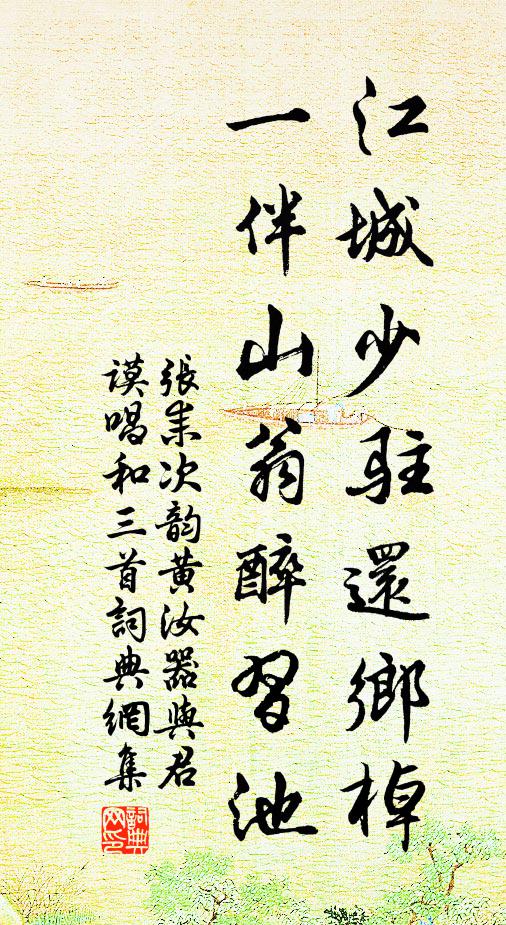 江城少駐還鄉棹
一伴山翁醉習池
張耒次韵黄汝器與君
謨唱和三首詞典網集
詞典网印